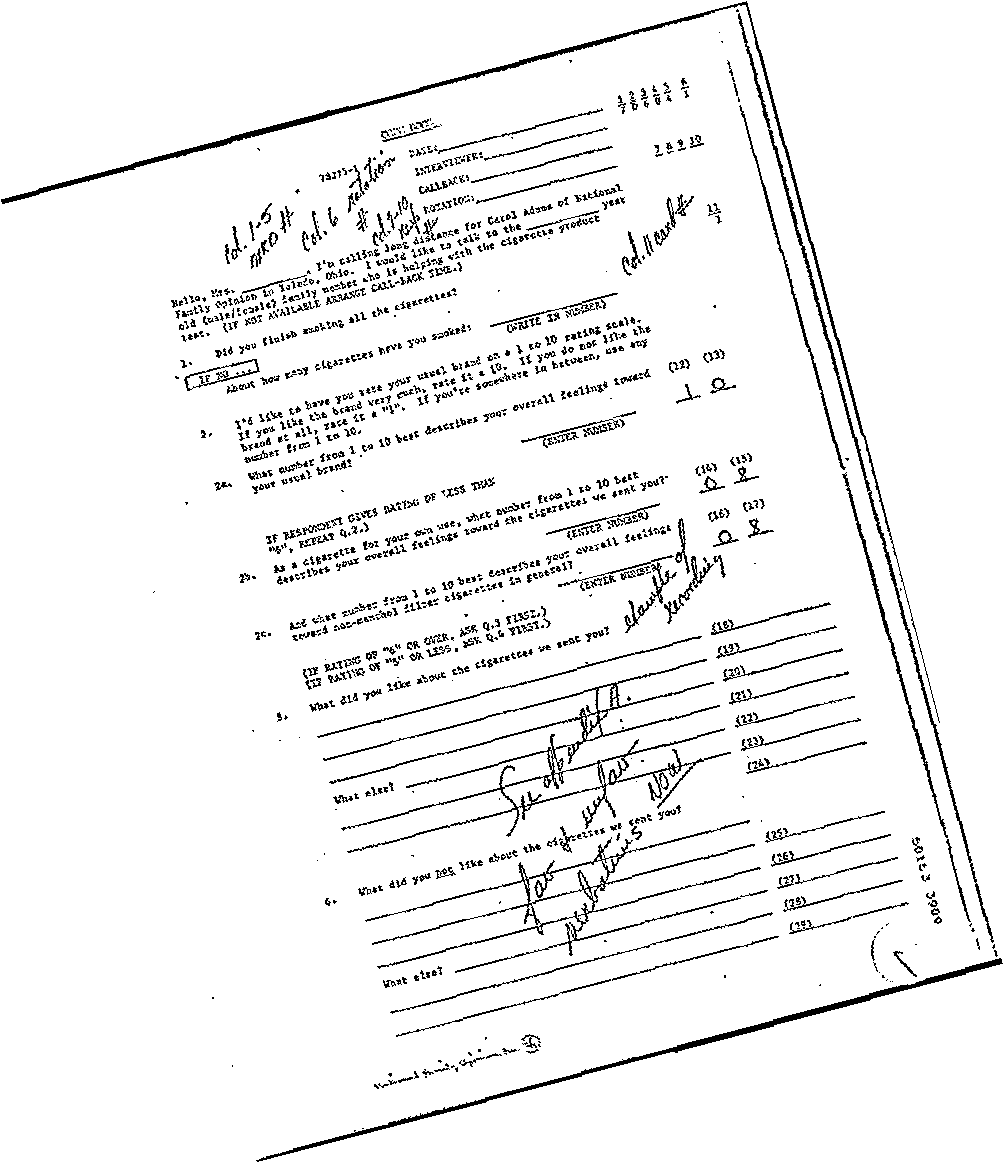 DATE:
INTERVIEWER:
CALLBACK:
ROTATION:
7 8 9 10
Col. 1-5
Col. 6 Rotation
#
Col. 7-10
#
Col. 11 card #
11
1
Hello, Mrs. ________, I'm calling long distance for Carol Adams of National
Family Opinion in Toledo, Ohio. I would like to talk to the ________ year
old (male/female) family member who is helping with the cigarette product
test. (IF NOT AVAILABLE ARRANGE CALL-BACK TIME.)
1. Did you finish smoking all the cigarettes?
IF NO ...
About how many cigarettes have you smoked:
(WRITE IN NUMBER)
2. I'd like to have you rate your usual brand on a 1 to 10 rating scale.
If you like the brand very much, rate it a 10. If you do not like the
brand at all, rate it a "1". If you're somewhere in between, use any
number from 1 to 10.
2a. What number from 1 to 10 best describes your overall feelings toward
your usual brand?
(ENTER NUMBER)
(12) (13)
1 0
IF RESPONDENT GIVES RATING OF LESS THAN
"5", REPEAT Q.2.)
2b. As a cigarette for your own use, what number from 1 to 10 best
describes your overall feelings toward the cigarettes we sent you?
(ENTER NUMBER)
(14) (15)
0 8
2c. And what number from 1 to 10 best describes your overall feelings
toward non-menthol filter cigarettes in general?
(ENTER NUMBER)
(16) (17)
0 8
Example of
recording
(IF RATING OF "6" OR OVER, ASK Q.3 FIRST.)
(IF RATING OF "5" OR LESS, ASK Q.4 FIRST.)
3. What did you like about the cigarettes we sent you?
(18)
(19)
(20)
(21)
What else?
(22)
(23)
(24)
See appendix A.
fav & unfav.
verbatims NOW
4. What did you not like about the cigarettes we sent you?
(25)
(26)
(27)
What else?
(28)
(29)
50113 3900